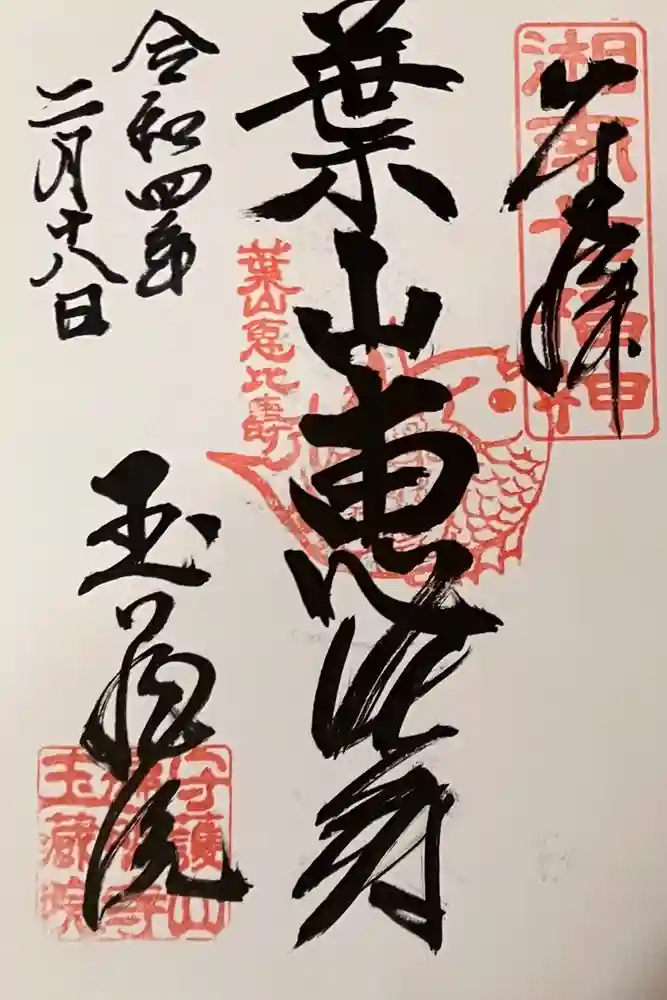 奉拝
湘南七福神
葉山恵比寿
葉山恵比壽
令和四年
二月十八日
玉蔵院
守護山
玉藏院